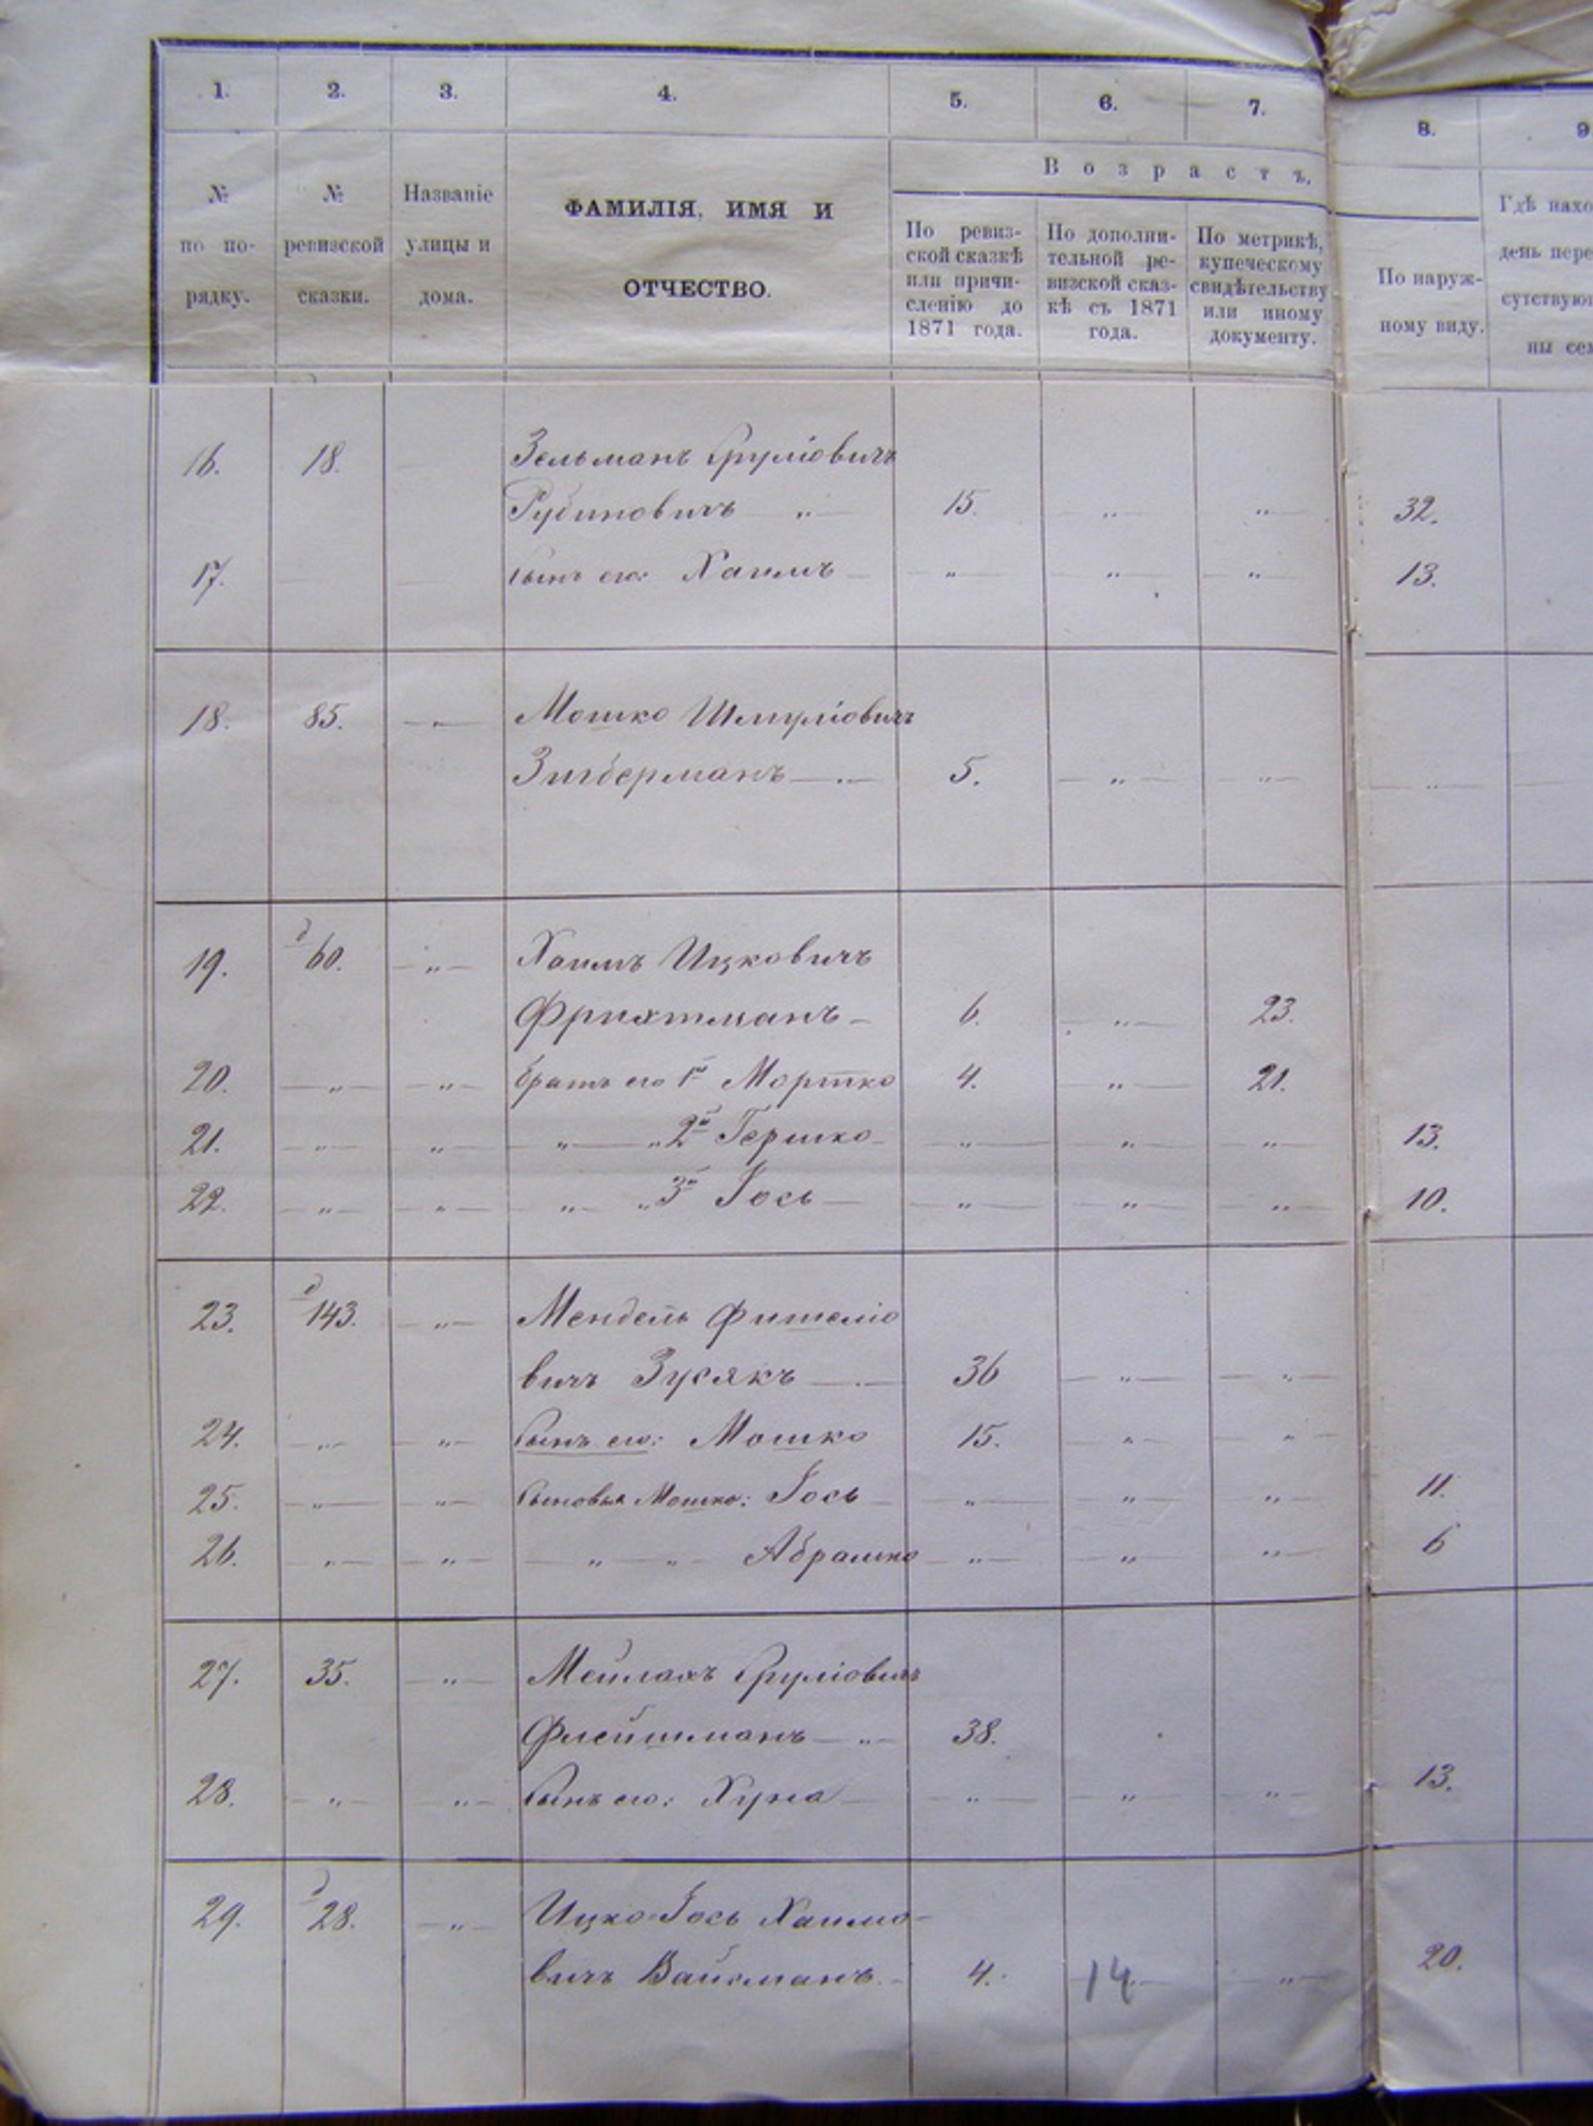 1. 2. 3. 4. 5. 6. 7. 8. 9
№ по порядку. № ревизской сказки. Названіе улицы и дома. ФАМИЛІЯ, ИМЯ И ОТЧЕСТВО. Возрастъ.
По ревизской сказкѣ или причисленію до 1871 года. По дополнительной ревизской сказкѣ съ 1871 года. По метрикѣ, купеческому свидѣтельству или иному документу. По наружному виду. Гдѣ нахо
день пере
сутствую
ны сем
16. 18. Зельманъ Сруліовичъ
Рубиновичъ „ 15. „ „ 32.
17. сынъ его: Хаимъ „ „ „ 13.
18. 85. „ Мошко Шмуліовичъ
Зигберманъ 5. „ „ „
19. д 60. „ Хаимъ Ицковичъ
Фрихтманъ 6. „ 23.
20. „ „ братъ его 1й Мортко 4. „ 21.
21. „ „ „ „ 2й Гершко „ „ „ 13.
22. „ „ „ „ 3й Іось „ „ „ 10.
23. д 143. „ Мендель Фишеліо
вичъ Зусякъ 36 „ „
24. „ „ Сынъ его: Мошко 15. „ „
25. „ „ Сыновья Мошко: Іось „ „ „ 11.
26. „ „ „ „ Абрамко „ „ „ 6
27. 35. „ Мейлахъ Сруліовичъ
Флейшманъ „ 38.
28. „ „ Сынъ его: Хуна „ „ „ 13.
29. д 28. „ Ицко-Іось Хаимо-
вичъ Вайсманъ 4. 14 „ 20.